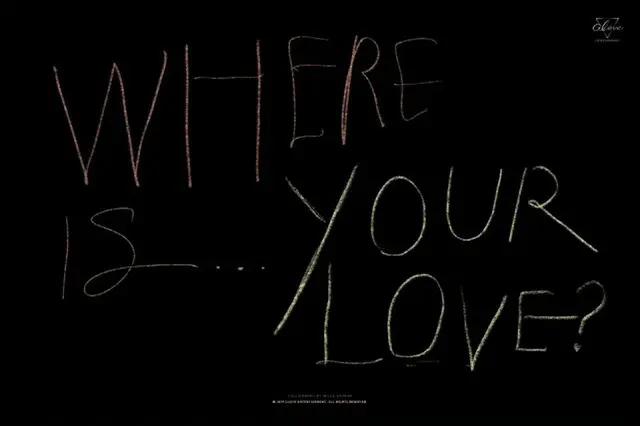 WHERE
IS....
YOUR
LOVE?